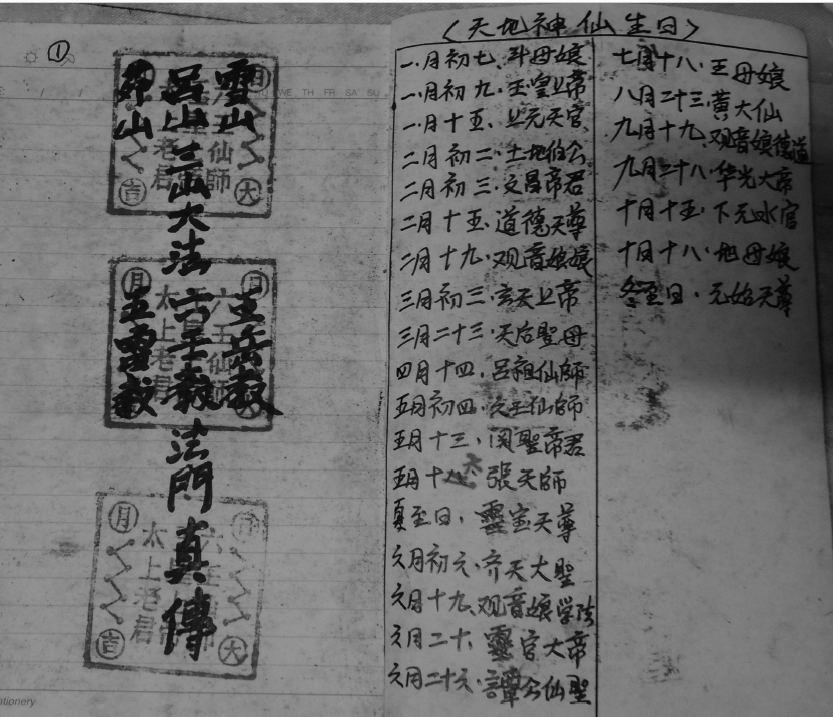 ①
雪山
吕山三山大法
茅山
五岳教
六壬教法門真傳
五雷教
日
月
六壬仙師
太上老君
大
吉
WE TH FR SA SU
tionery
〈天地神仙生日〉
一月初七·斗母娘
一月初九·玉皇上帝
一月十五·上元天官
二月初二·土地伯公
二月初三·文昌帝君
二月十五·道德天尊
二月十九·观音娘娘
三月初三·玄天上帝
三月二十三·天后聖母
四月十四·吕祖仙師
五月初四·六壬仙師
五月十三·関聖帝君
五月十八·張天師
夏至日·靈宝天尊
六月初六·齐天大聖
六月十九·观音娘学法
六月二十·靈官大帝
六月二十六·譚公仙聖
七月十八·王母娘
八月二十三·黄大仙
九月十九·观音娘得道
九月二十八·华光大帝
十月十五·下元水官
十月十八·地母娘
冬至日·元始天尊